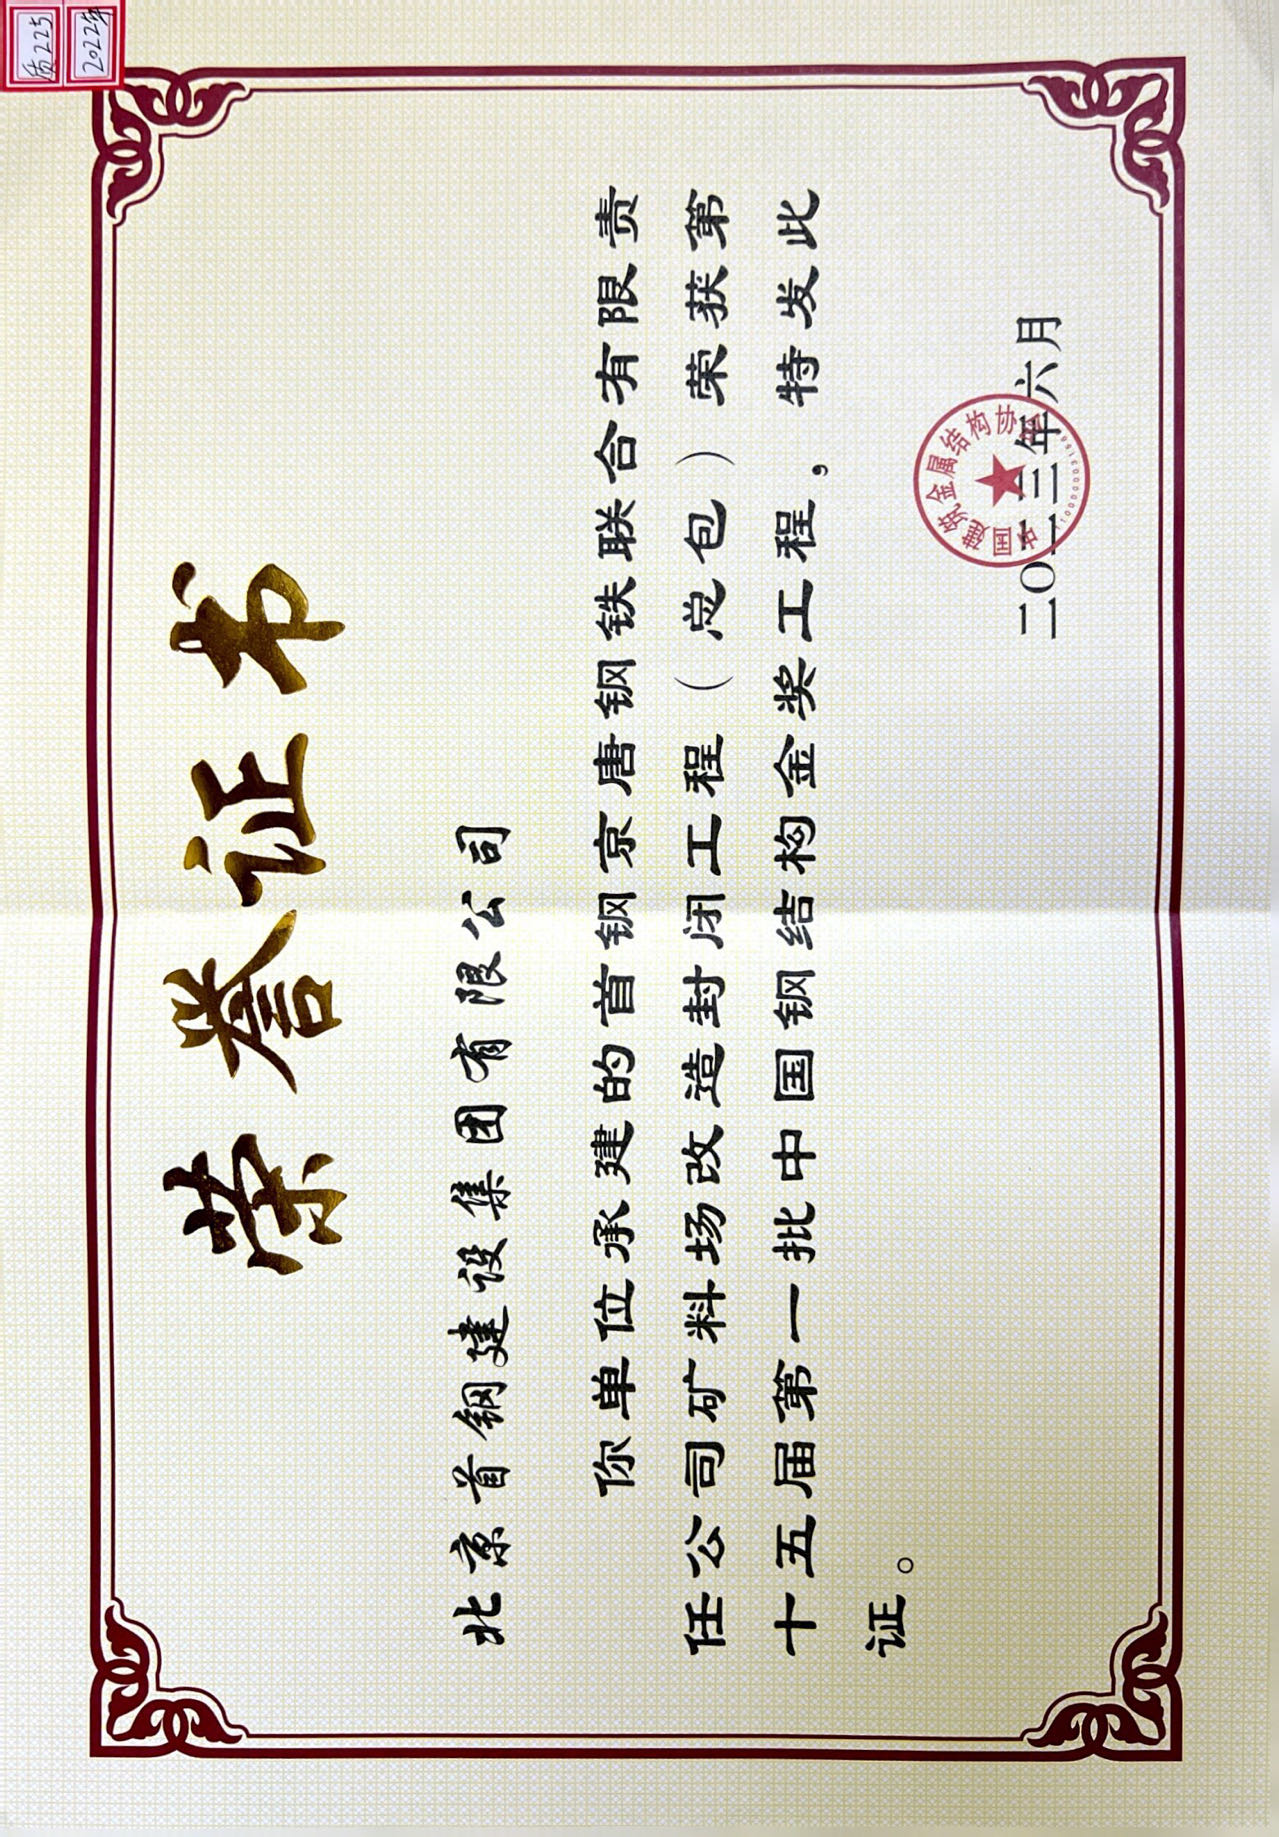 质225
2022年
荣誉证书
北京首钢建设集团有限公司
你单位承建的首钢京唐钢铁联合有限责
任公司矿料场改造封闭工程（总包）荣获第
十五届第一批中国钢结构金奖工程，特发此
证。
中国建筑金属结构协会
二〇二三年六月